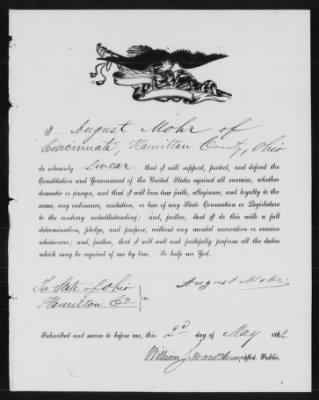 I August Mohr of
Cincinnati, Hamilton County, Ohio
do solemnly swear that I will support, protect, and defend the
Constitution and Government of the United States against all enemies, whether
domestic or foreign, and that I will bear true faith, allegiance, and loyalty to the
same, any ordinance, resolution, or law of any State Convention or Legislature
to the contrary notwithstanding; and, further, that I do this with a full
determination, pledge, and purpose, without any mental reservation or evasion
whatsoever; and, further, that I will well and faithfully perform all the duties
which may be required of me by law. So help me God.
August Mohr
The State of Ohio
Hamilton Co } ss.
Subscribed and sworn to before me, this 2d day of May 1862
William J. Public.